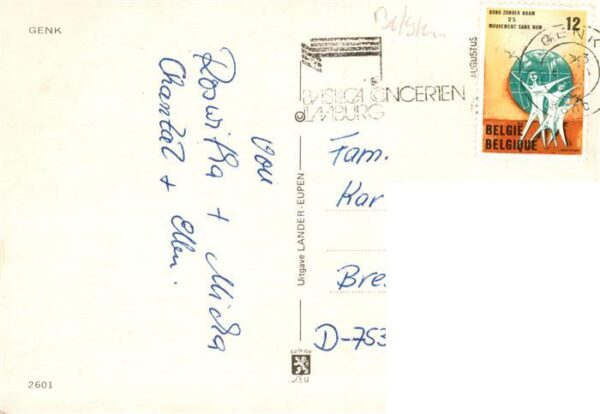 GENK
von
Roswitha + Micha
Chantal + Ellen.
2601
Uitgave LANDER-EUPEN
LEU
Belgien
BASILICA CONCERTEN
LIMBURG
AUGUSTUS
GENK
BOND ZONDER NAAM
25
MOUVEMENT SANS NOM
12
BELGIË
BELGIQUE
Fam.
Kar
Bre
D-753